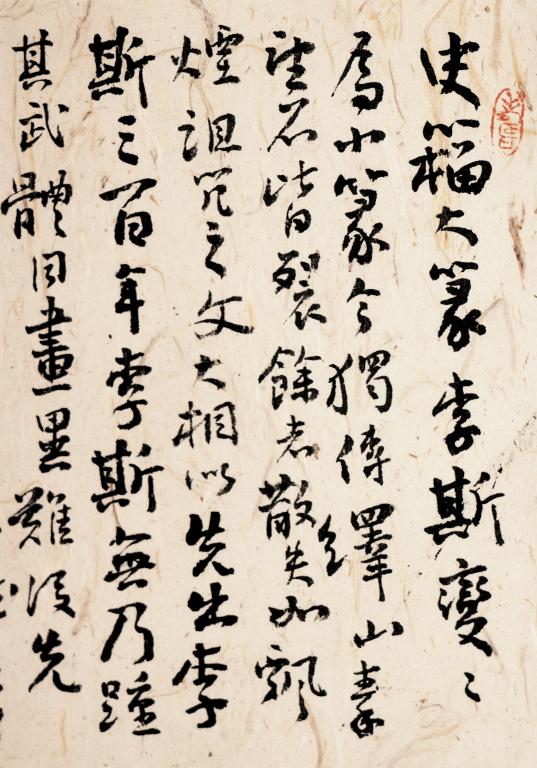 史籀大篆李斯變〻
為小篆今獨傳繹山秦
望石皆裂餘者散失如飄
煙詛咒之文大相似先生李
斯三百年李斯無乃踵
其武體同畫異難後先